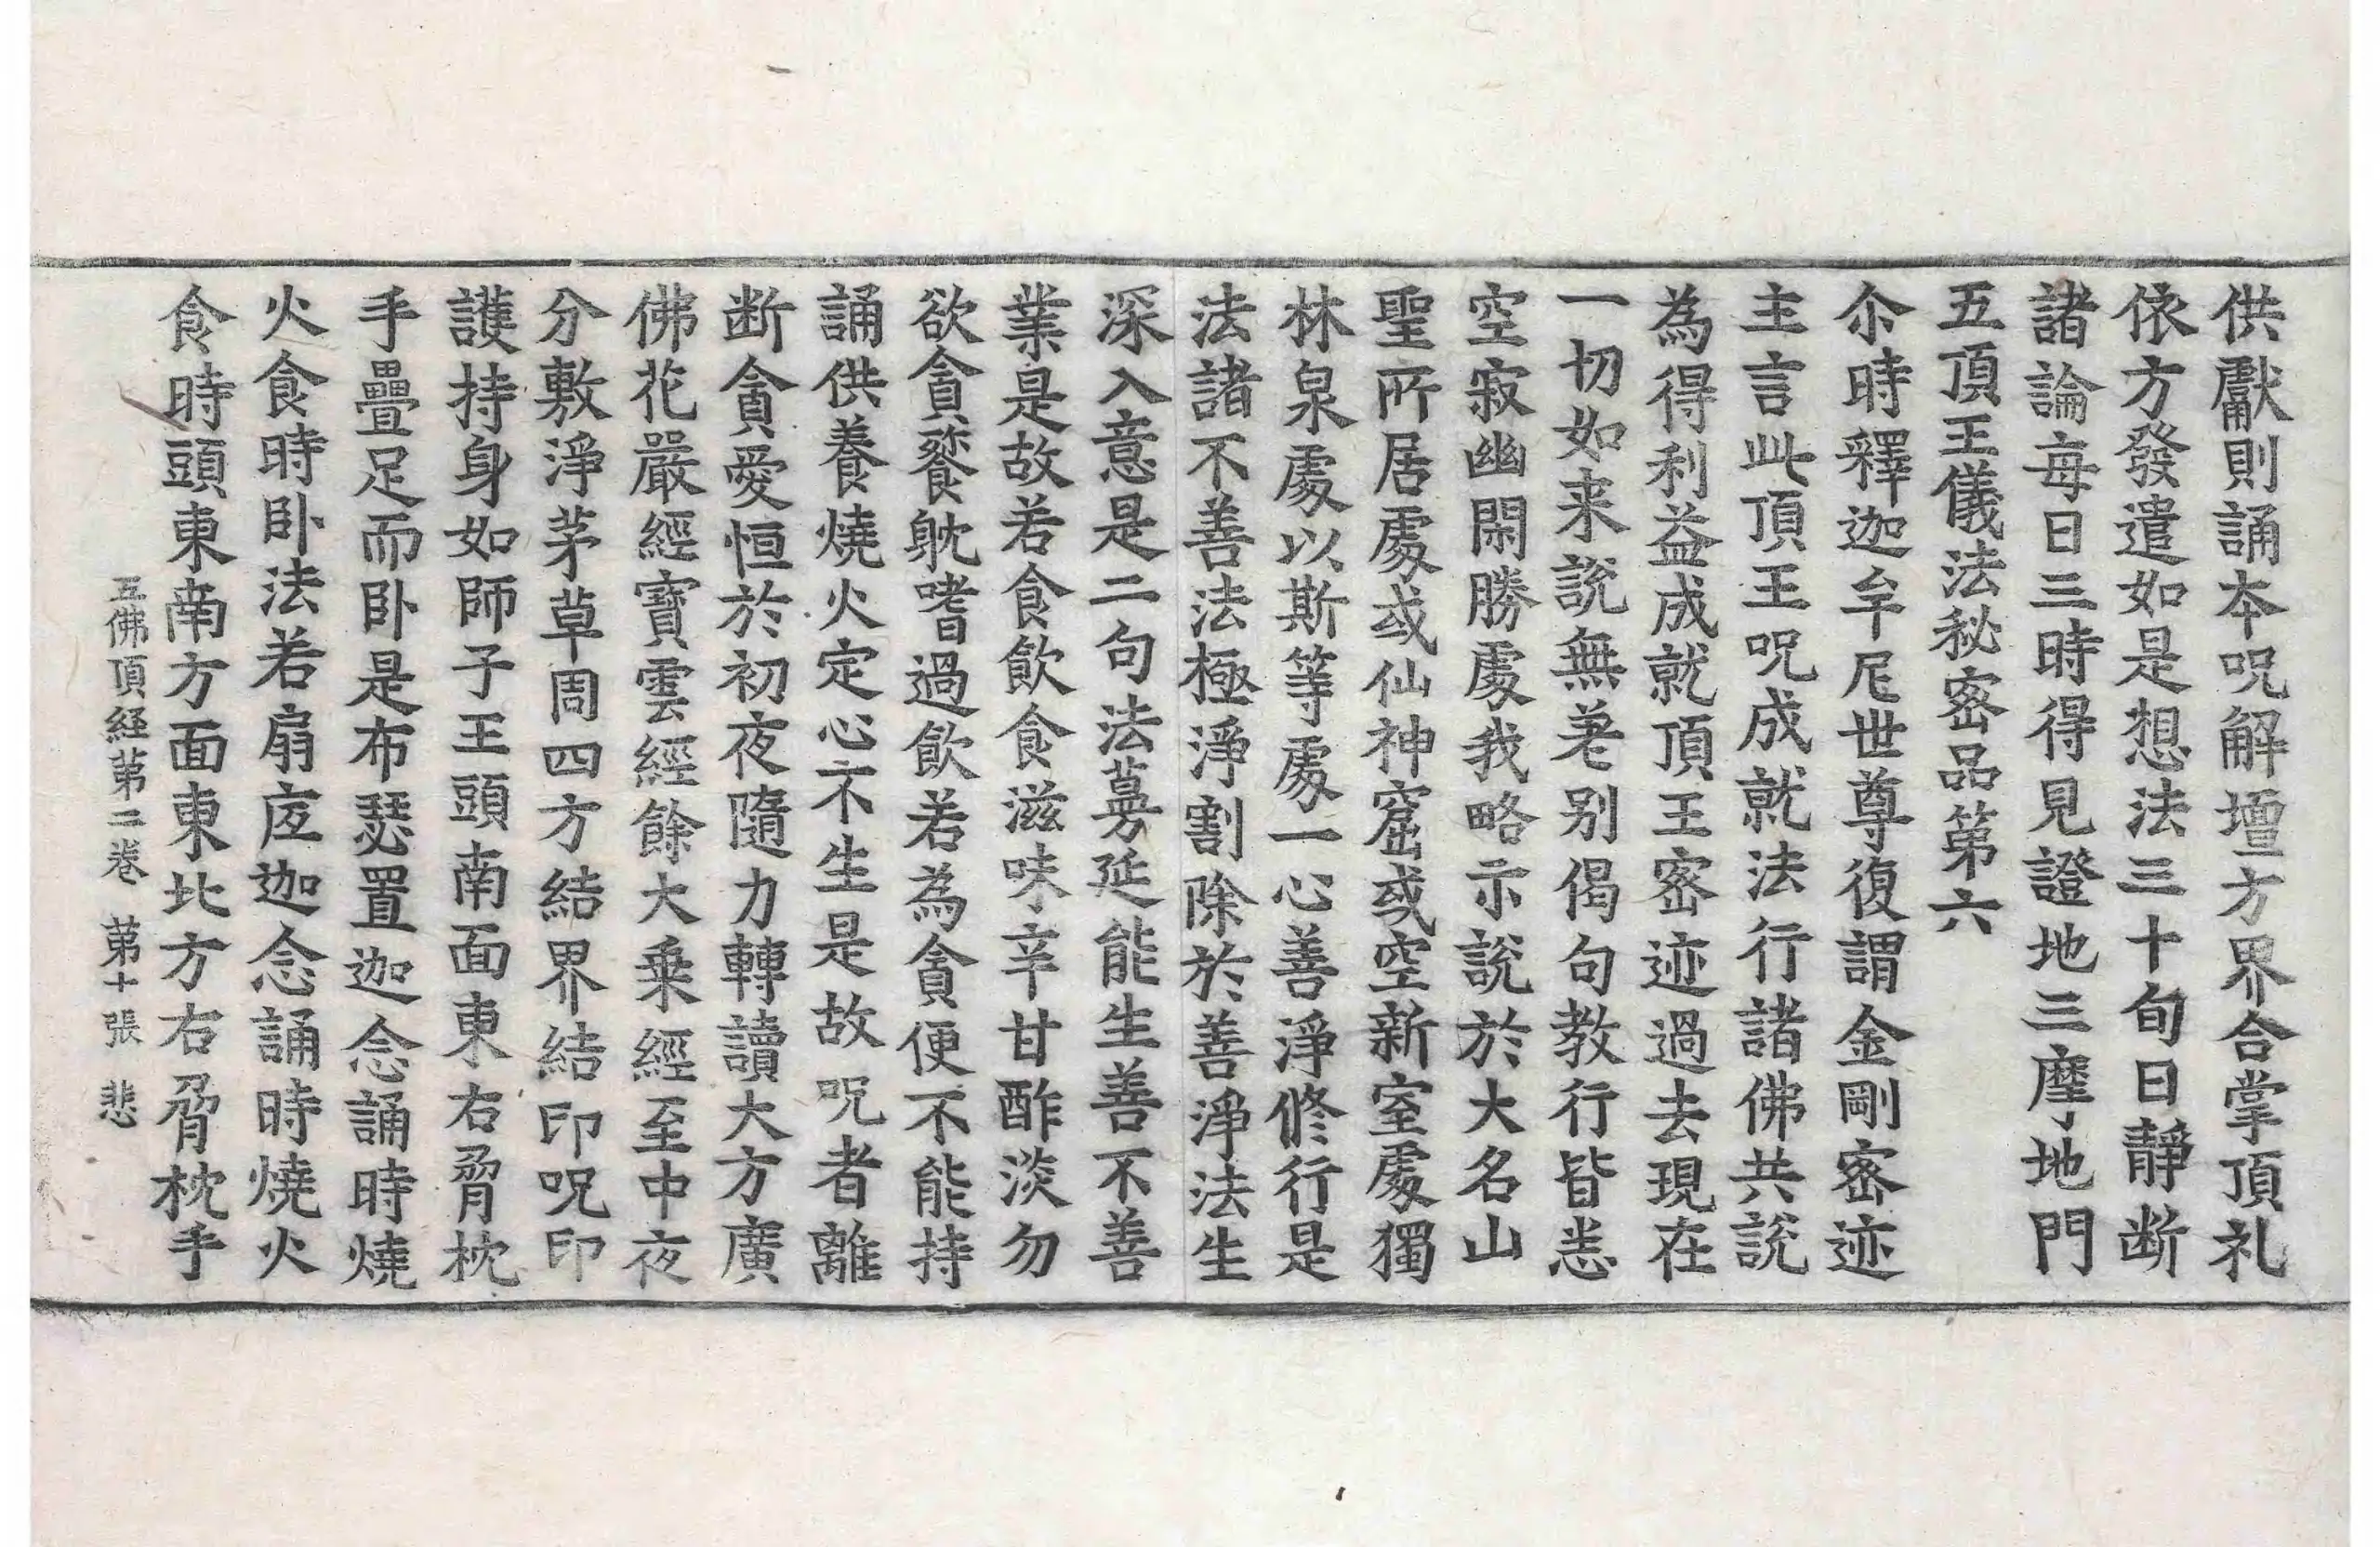 供獻則誦本呪解壇方界合掌頂礼
依方發遣如是想法三十旬日靜断
諸論每日三時得見證地三摩地門
五頂王儀法秘密品第六
尒時釋迦牟尼世尊復謂金剛密迹
主言此頂王呪成就法行諸佛共說
為得利益成就頂王密迹過去現在
一切如来說無差别偈句教行皆悉
空寂幽閑勝處我略示說於大名山
聖所居處或仙神窟或空新室處獨
林泉處以斯等處一心善淨修行是
法諸不善法極淨割除於善淨法生
深入意是二句法蔓延能生善不善
業是故若食飲食滋味辛甘酢淡勿
欲貪餮躭嗜過飲若為貪便不能持
誦供養燒火定心不生是故呪者離
断貪愛恒於初夜隨力轉讀大方廣
佛花嚴經寶雲經餘大乗經至中夜
分敷淨茅草周四方結界結印呪印
護持身如師子王頭南面東右脅枕
手疊足而卧是布瑟置迦念誦時燒
火食時卧法若扇底迦念誦時燒火
食時頭東南方面東北方右脅枕手
五佛頂経苐二卷 苐十張 悲